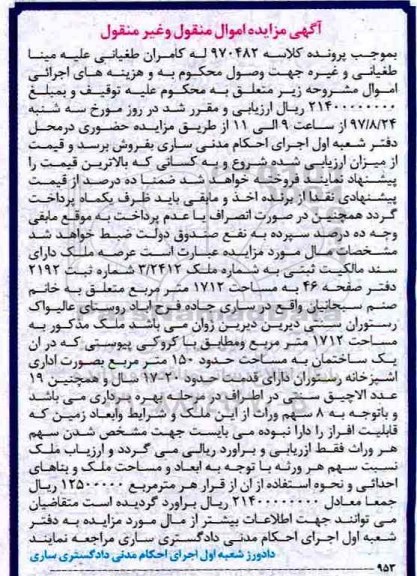 آگهی مزایده اموال منقول وغیر منقول
بموجب پرونده کلاسه ۹۷۰۴۸۲ له کامران طغیانی علیه مینا
طغیانی و غیره جهت وصول محکوم به و هزینه های اجرائی
اموال مشروحه زیر متعلق به محکوم علیه توقیف و بمبلغ
۲۱۴۰۰۰۰۰۰۰۰ ریال ارزیابی و مقرر شد در روز مورخ سه شنبه
۹۷/۸/۲۴ از ساعت ۹ الی ۱۱ از طریق مزایده حضوری درمحل
دفتر شعبه اول اجرای احکام مدنی ساری بفروش برسد و قیمت
از میزان ارزیابی شده شروع و به کسانی که بالاترین قیمت را
پیشنهاد نمایند فروخته خواهد شد ضمنا ده درصد از قیمت
پیشنهادی نقدا از برنده اخذ و مابقی باید ظرف یکماه پرداخت
گردد همچنین در صورت انصراف یا عدم پرداخت به موقع مابقی
وجه ده درصد سپرده به نفع صندوق دولت ضبط خواهد شد
مشخصات مال مورد مزایده عبارت است عرصه ملک دارای
سند مالکیت ثبتی به شماره ملک ۳/۲۴۱۲ شماره ثبت ۲۱۹۲
دفتر صفحه ۴۶ به مساحت ۱۷۱۲ متر مربع متعلق به خانم
صنم سبحانیان واقع در ساری جاده فرح اباد روستای عالیواک
رستوران سنتی دیرین دیرین زوان می باشد ملک مذکور به
مساحت ۱۷۱۲ متر مربع ومطابق با کروکی پیوستی که در ان
یک ساختمان به مساحت حدود ۱۵۰ متر مربع بصورت اداری
اشپزخانه رستوران دارای قدمت حدود ۲۰-۱۷ سال و همچنین ۱۹
عدد الاچیق سنتی در اطراف در مرحله بهره برداری می باشد
و باتوجه به ۸ سهم وراث از این ملک و شرایط وابعاد زمین که
قابلیت افراز را دارا نبوده می بایست جهت مشخص شدن سهم
هر وراث فقط ارزیابی و براورد ریالی می گردد و ارزیاب ملک
نسبت سهم هر ورثه با توجه به ابعاد و مساحت ملک و بناهای
احداثی و نحوه استفاده از ان از قرار هر مترمربع ۱۲۵۰۰۰۰۰ ریال
جمعا معادل ۲۱۴۰۰۰۰۰۰۰۰ ریال براورد گردیده است متقاضیان
می توانند جهت اطلاعات بیشتر از مال مورد مزایده به دفتر
شعبه اول اجرای احکام مدنی دادگستری ساری مراجعه نمایند
دادورز شعبه اول اجرای احکام مدنی دادگستری ساری
۹۵۳